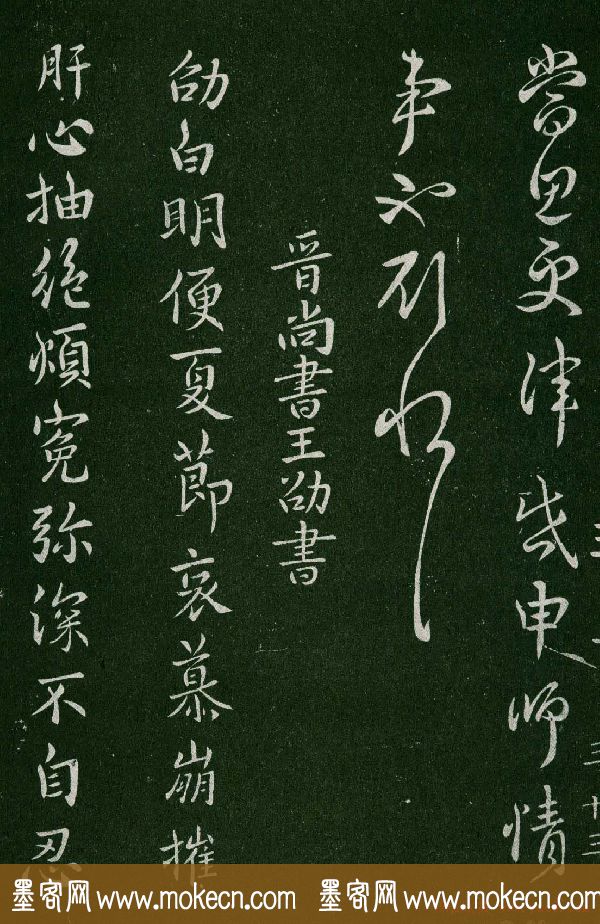 當思更律
申師情
事
晉尚書王劭書
劭白明便夏節哀慕崩摧
肝心抽絕煩冤弥深不自忍
三
三十三
墨客网 www.mokecn.com 墨客网 www.mokecn.com